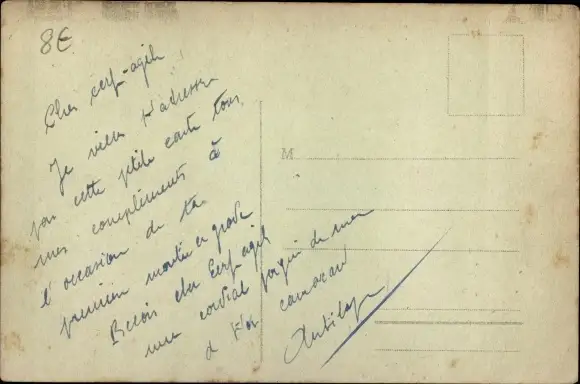 8€
Cher cerf-agile
Je viens t'adresser
par cette petite carte tous
mes compliments à
l'occasion de ta
première montée en grade
Reçois cher Cerf-agile
une cordiale poignée de main
d
Antilope
M